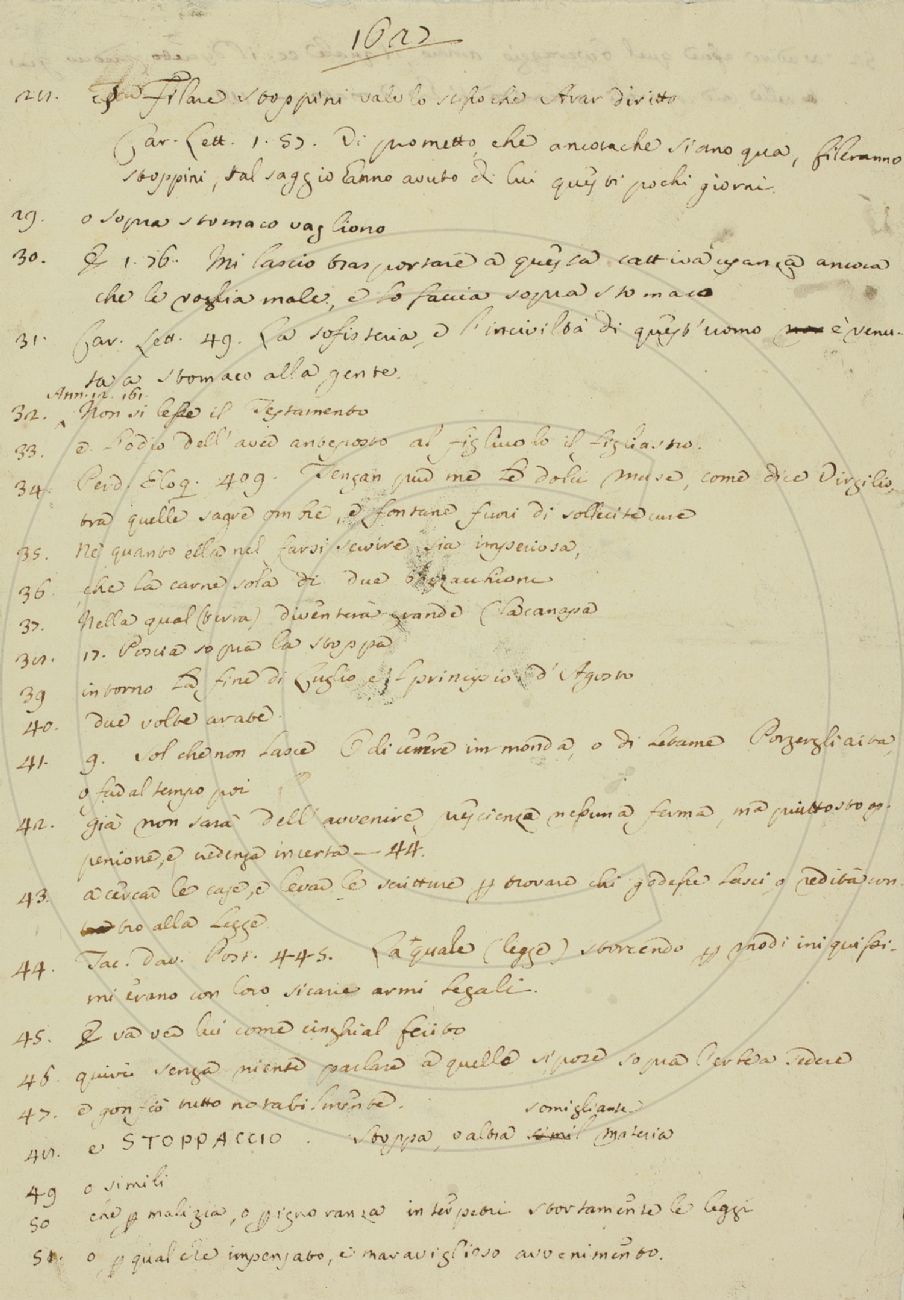 1627
28. Filare stoppini vale lo stesso che Arar diritto
Car. Lett. 1. 57. Di prometto, che ancorache siano qua, fileranno
stoppini, tal saggio hanno avuto di lui questi pochi giorni.
29. o sopra stomaco vagliono
30. E 1. 76. Mi lascio trasportare a questa cattiva usanza ancora
che le voglia male, e lo faccia sopra stomaco
31. Car. Lett. 49. La sofisteria, e l'inciviltà di quest'uomo è venu-
ta a stomaco alla gente.
Ann. 12. 161.
32. Non si lesse il Testamento
33. e l'odio dell'aver anteposto al figliuolo il figliastro.
34. Perd. Eloq. 409. Tengan pur me le dolci Muse, come dice Virgilio,
tra quelle sagre ombre, e fontane fuori di sollecite cure
35. Nè quanto ella nel farsi servire sia imperiosa,
36. che la carne sola di due
37. Nella qual (terra) diventerà grande la canapa
38. 17. Poscia sopra la stoppa
39 intorno la fine di Luglio, e 'l principio d'Agosto
40. due volte arate.
41. 9. Sol che non lasce di cenere immonda, o di letame Porgergli aita,
o fad al tempo poi
42. già non sarà dell'avvenire scienza nessuna ferma, ma piuttosto op-
penione, e credenza incerta — 44.
43. a cercar le case, e levar le scritture per trovare chi godesse lasci, o redità con-
tro alla Legge.
44. Tac. dav. Post. 445. La quale (legge) storcendo per modi iniquissi-
mi erano con loro sicarie armi legali.
45. E va ver lui come cinghial ferito
46. quivi senza niente parlare a quelle si pose sopra l'erba a sedere
47. e gonfiò tutto notabilmente.
somigliante
48. e STOPPACCIO. Stoppa, o altra materia
49 o simili
50 che per malizia, o per ignoranza interpetri stortamente le leggi
51. o per qualche impensato, e maraviglioso avvenimento.